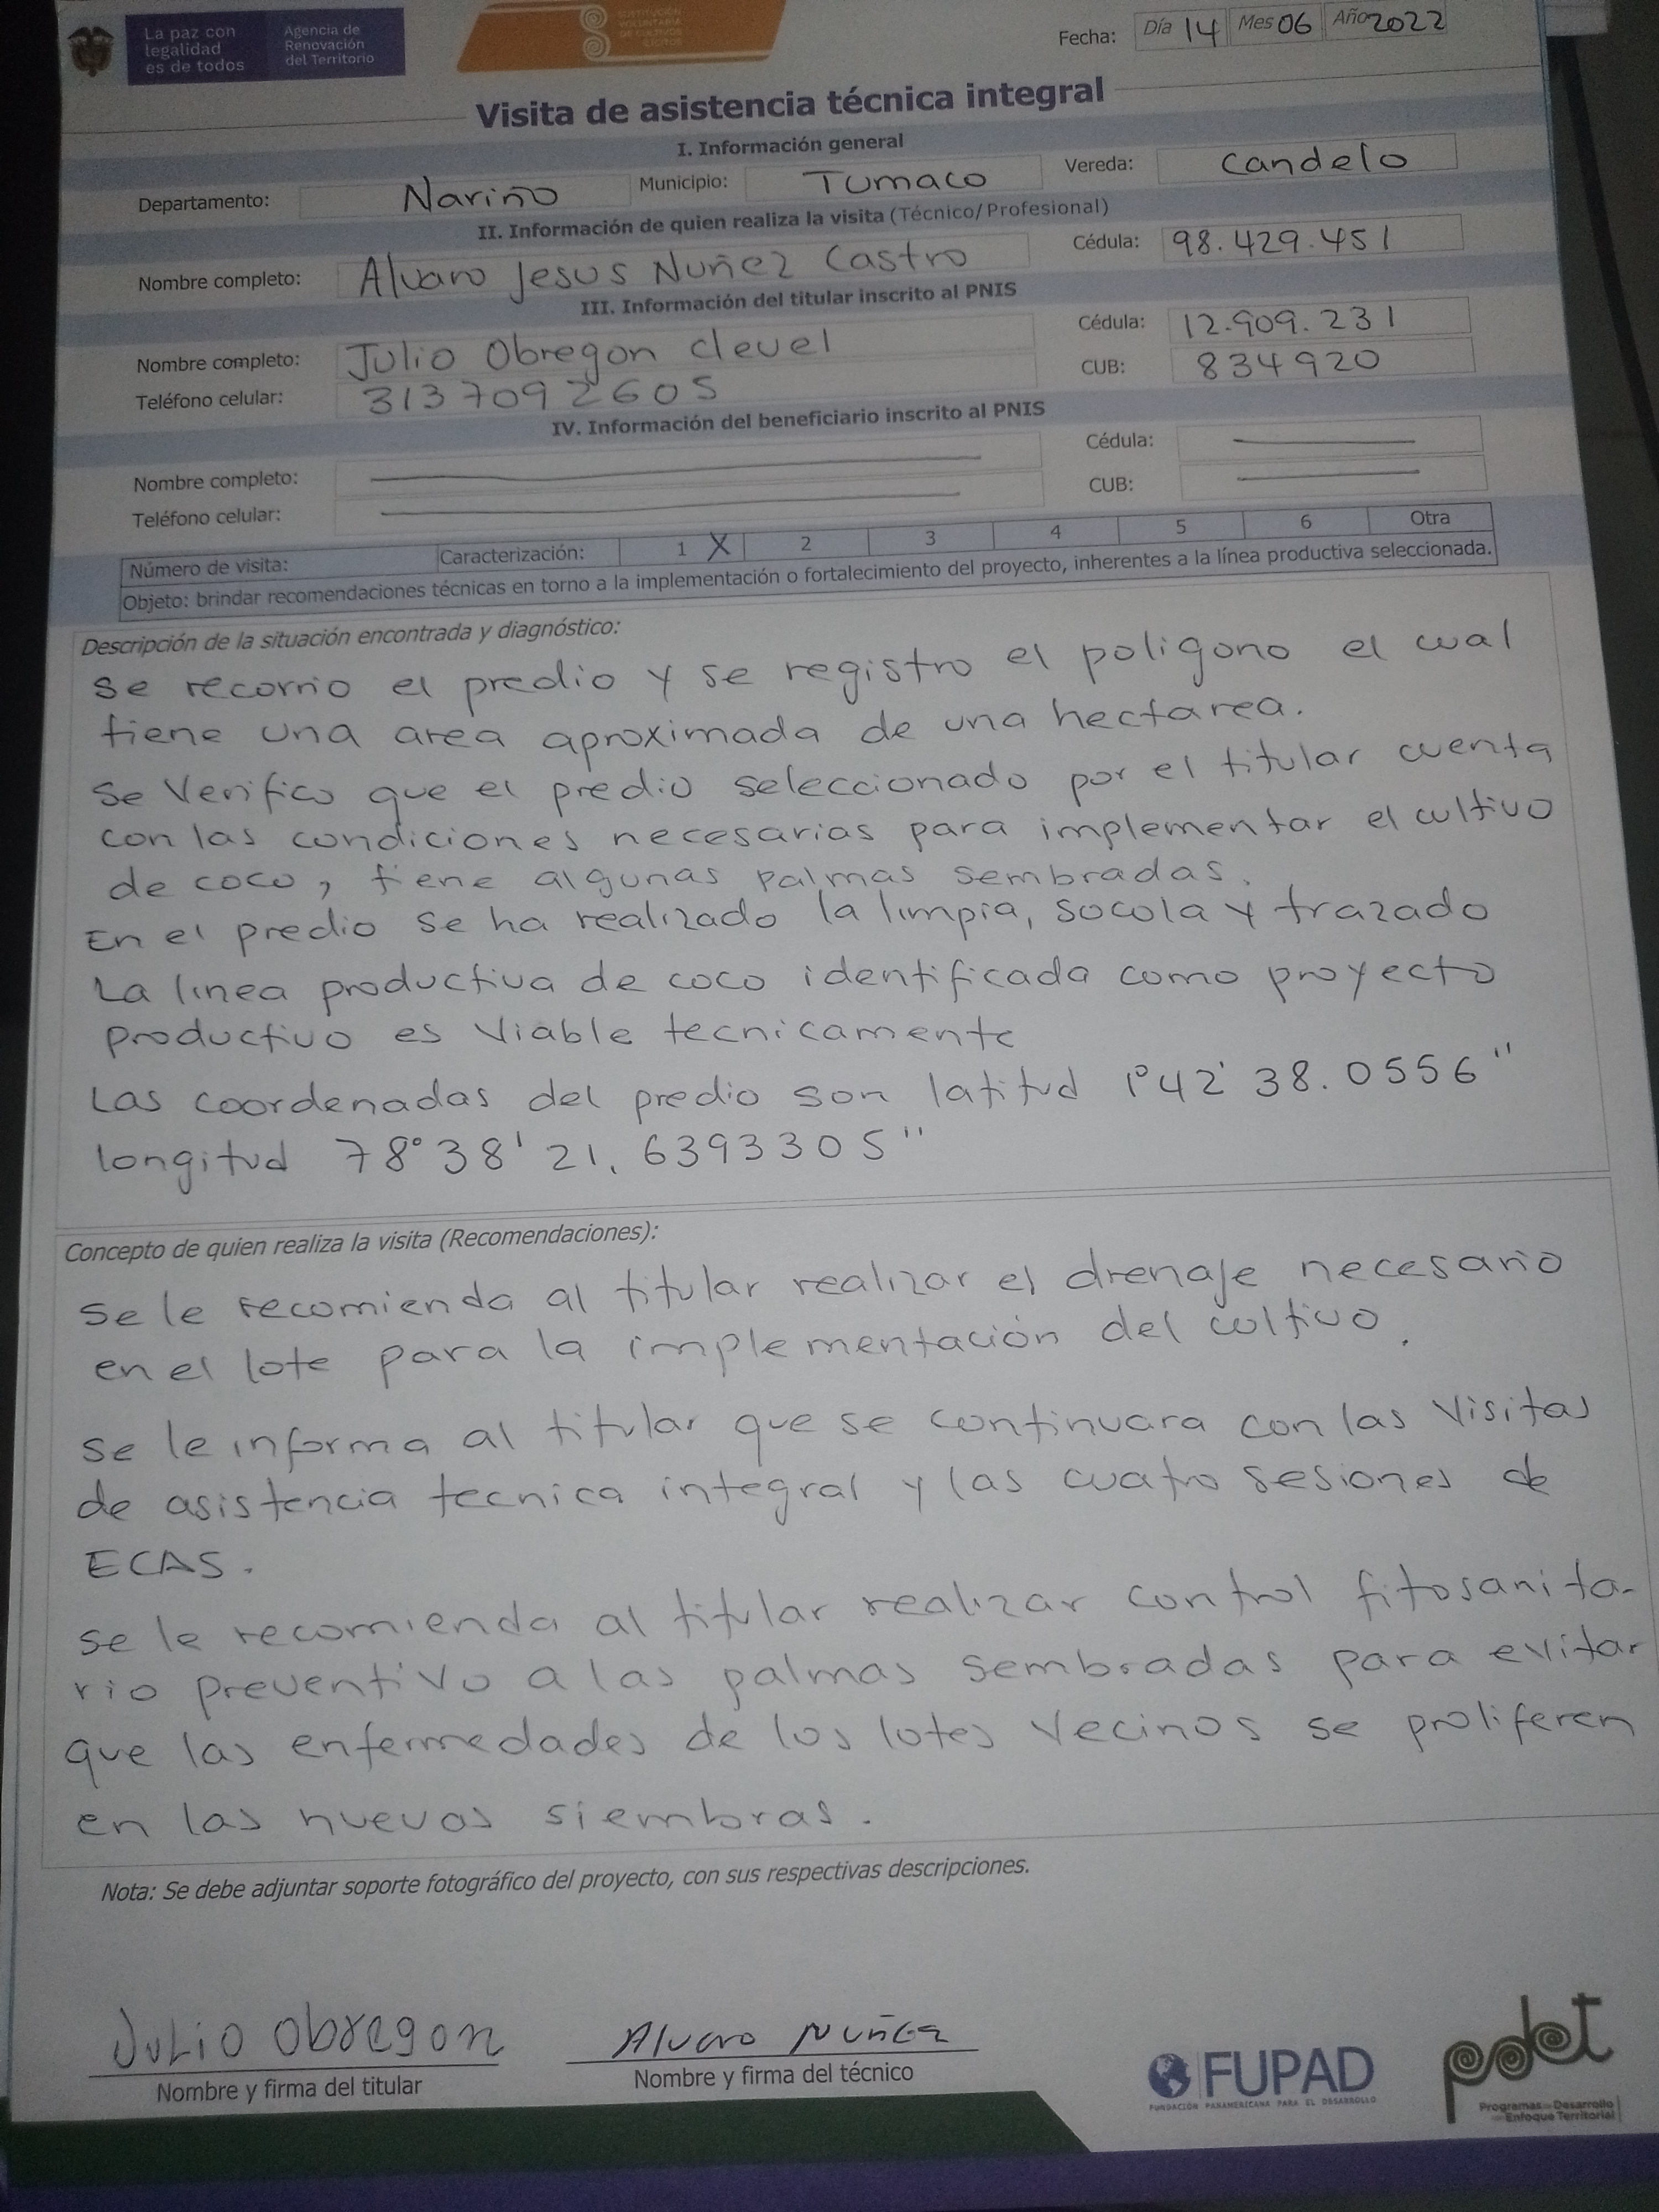 La paz con
legalidad
es de todos
Agencia de
Renovación
del Territorio
SUSTITUCIÓN
VOLUNTARIA
DE CULTIVOS
ILÍCITOS
Fecha: Día 14 Mes 06 Año 2022
Visita de asistencia técnica integral
I. Información general
Departamento: Nariño Municipio: Tumaco Vereda: Candelo
II. Información de quien realiza la visita (Técnico/Profesional)
Nombre completo: Alvaro Jesus Nuñez Castro Cédula: 98.429.451
III. Información del titular inscrito al PNIS
Nombre completo: Julio Obregon Clevel Cédula: 12.909.231
Teléfono celular: 3137092605 CUB: 834920
IV. Información del beneficiario inscrito al PNIS
Nombre completo: Cédula:
Teléfono celular: CUB:
Número de visita: Caracterización: 1 X 2 3 4 5 6 Otra
Objeto: brindar recomendaciones técnicas en torno a la implementación o fortalecimiento del proyecto, inherentes a la línea productiva seleccionada.
Descripción de la situación encontrada y diagnóstico:
Se recorrio el predio y se registro el poligono el cual
tiene una area aproximada de una hectarea.
Se Verifico que el predio seleccionado por el titular cuenta
con las condiciones necesarias para implementar el cultivo
de coco, tiene algunas palmas sembradas.
En el predio se ha realizado la limpia, socola y trazado
La linea productiva de coco identificada como proyecto
productivo es Viable tecnicamente
Las coordenadas del predio son latitud 1°42' 38.0556"
longitud 78°38'21.6393305"
Concepto de quien realiza la visita (Recomendaciones):
Se le recomienda al titular realizar el drenaje necesario
en el lote para la implementación del cultivo.
Se le informa al titular que se continuara con las Visitas
de asistencia tecnica integral y las cuatro sesiones de
ECAS.
se le recomienda al titular realizar control fitosanita-
rio preventivo a las palmas sembradas para evitar
que las enfermedades de los lotes Vecinos se proliferen
en las nuevas siembras.
Nota: Se debe adjuntar soporte fotográfico del proyecto, con sus respectivas descripciones.
Julio Obregon Alvaro Nuñez
Nombre y firma del titular Nombre y firma del técnico
FUPAD
FUNDACIÓN PANAMERICANA PARA EL DESARROLLO
pdet
Programas de Desarrollo
con Enfoque Territorial